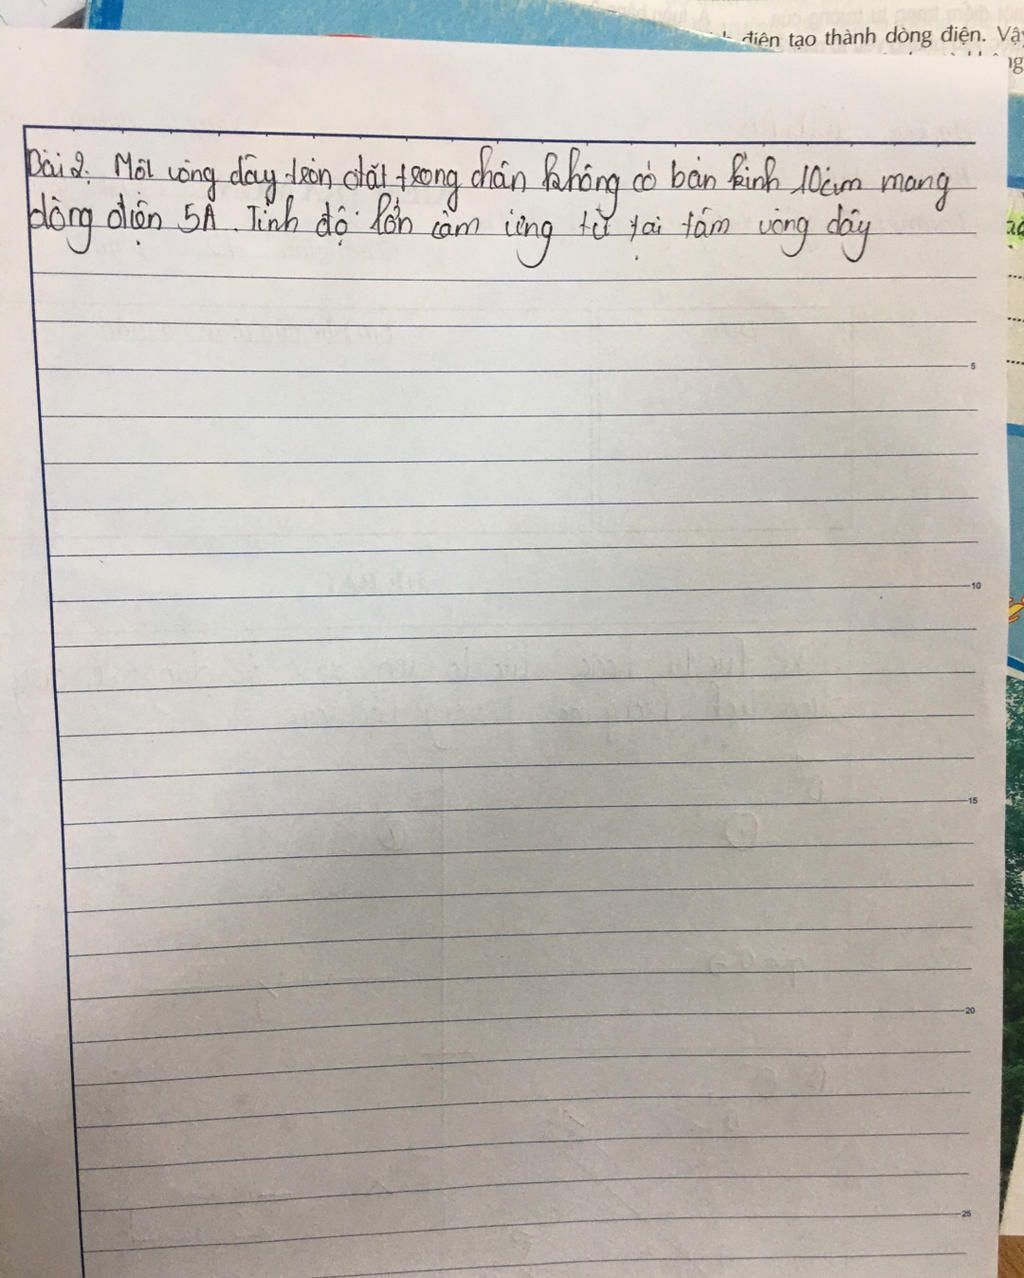 điện tạo thành dòng điện. Vậy
Bài 2: Một vòng dây tròn đặt trong chân không có bán kính 10cm mang
dòng điện 5A. Tính độ lớn cảm ứng từ tại tâm vòng dây
5
10
15
20
25